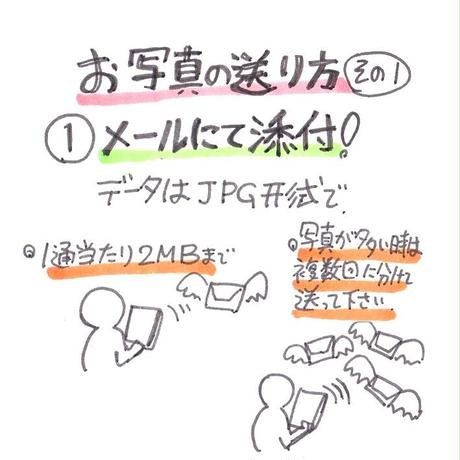 お写真の送り方 その1
① メールにて添付!
データはJPG形式で
1通当たり2MBまで
写真が多い時は
複数回に分けて
送って下さい